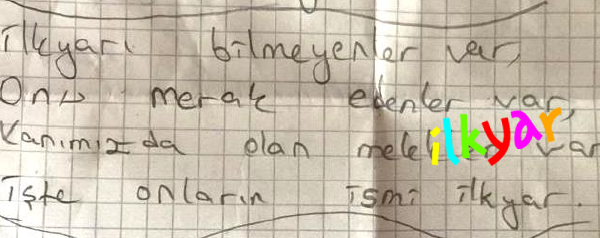 ilkyarı bilmeyenler var,
Onu merak edenler var,
Yanımızda olan melekler var
ilkyar
İşte onların ismi ilkyar.